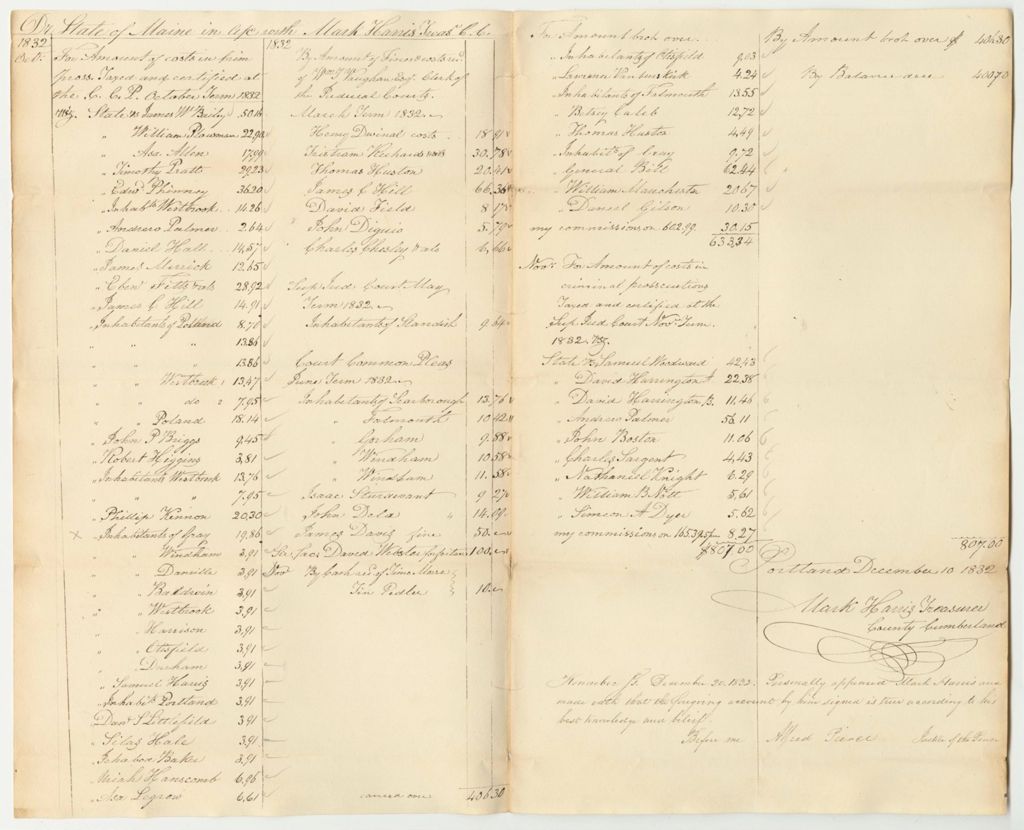 Dr State of Maine in a/c with Mark Harris Treasr C. C.
1832
Oct. For Amount of costs in crim
pross. Taxed and certified at
the C. C. P. October Term 1832
viz. State vs James W. Baily 50.16
" William Plowman 22,90
" Asa Allen 17,99
" Timothy Pratt 29,23
" Edwd Phinney 36.30
" Inhabts Westbrook 14.26
" Andrew Palmer 2,64
" Daniel Hall 14,57
" James Merrick 12,65
" Eben Fitts & als 28,92
" James C Hill 14.91
" Inhabitants of Portland 8.70
" " " 13.86
" " " 13,86
" " Westbrook 13,47
" " do 2 7,95
" " Poland 18.14
" John P Briggs 9.45
" Robert Higgins 3,81
" Inhabitants Westbrook 13,76
" " " 7,95
" Phillip Kennon 20,30
x " Inhabitants of Gray 19,86
" " Windham 3,91
" " Danville 3,91
" " Baldwin 3,91
" " Westbrook 3,91
" " Harrison 3,91
" " Otisfield 3,91
" " Durham 3,91
" Samuel Harris 3,91
" Inhabts Portland 3,91
" Danl S Littlefield 3,91
" Silas Hale 3,91
" Baker 3,91
" Uriah Hanscomb 6,96
" Asa Legrow 6,61
1832
By Amount of Fines & costs recd
of Wm T Vaughan Esq. Clerk of
the Judicial Courts.
March Term 1832
Henry Dwinal costs 18.91
Tristram Richards & als 30.78
Thomas Huston 20.41
James C Hill 66.36
David Field 8 17
John Diguio 5.79
Charles Chesley & als 6,66
Sup Jud Court May
Term 1832
Inhabitants of Standish 9 64
Court Common Pleas
June Term 1832
Inhabitants of Scarborough 13.76
" Falmouth 10 42
" Gorham 9.88
" Windham 10.58
" Windham 11.58
Isaac Sturdivant 9 27
John Dela " 14.09
James Davis fine 50.
David Webster 100.
Nov By Cash recd of
Tin Pedler 10.
carried over 406 30
For Amount brot over
" Inhabitants of Otisfield 9,03
" Lavinia Vanbuskirk 4.24
" Inhabitants of Falmouth 13.55
" Betsey Caleb 12,72
" Thomas Huston 4,49
" Inhabits of Gray 9,72
" General Bill 62.44
" William Manchester 20.67
" Daniel Gilson 10.30
my commissions on 602.99 30.15
633,34
Nov. For Amount of costs in
criminal prosecutions
Taxed and certified at the
Sup Jud Court Nov. Term
1832. viz.
State vs Samuel Woodward 42,43
" David Harrington 22,38
" David Harrington Jr. 11,46
" Andrew Palmer 56.11
" John Boston 11.06
" Charles Sargent 4,43
" Nathaniel Knight 6.29
" William B. Nott 5,61
" Simeon A Dyer 5.62
my commissions on 165.39 8,27
$807 00
By Amount brot over $ 406.30
By Balance due 400.70
807.00
Portland December 10 1832
Mark Harris Treasurer
County Cumberland
ss. December 20. 1832. Personally appeared Mark Harris and
made oath that the foregoing account by him signed is true according to his
best knowledge and belief.
Before me Alfred Pierce Justice of the Peace